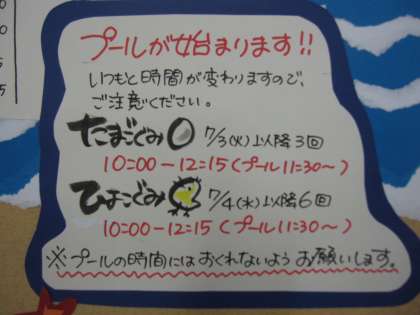 プールが始まります!!
いつもと時間が変わりますので、
ご注意ください。
たまごぐみ 7/3(火)以降3回
10:00-12:15(プール11:30~)
ひよこぐみ 7/4(水)以降6回
10:00-12:15(プール11:30~)
※プールの時間にはおくれないようお願いします。